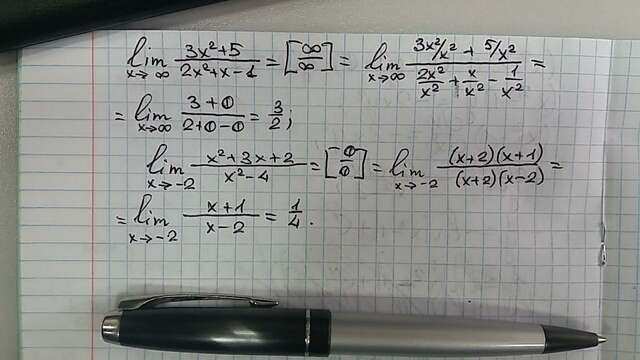 lim x→∞ (3x²+5)/(2x²+x-1) = [∞/∞] = lim x→∞ (3x²/x² + 5/x²)/(2x²/x² + x/x² - 1/x²) =
= lim x→∞ (3+0)/(2+0-0) = 3/2;
lim x→-2 (x²+3x+2)/(x²-4) = [0/0] = lim x→-2 ((x+2)(x+1))/((x+2)(x-2)) =
= lim x→-2 (x+1)/(x-2) = 1/4.